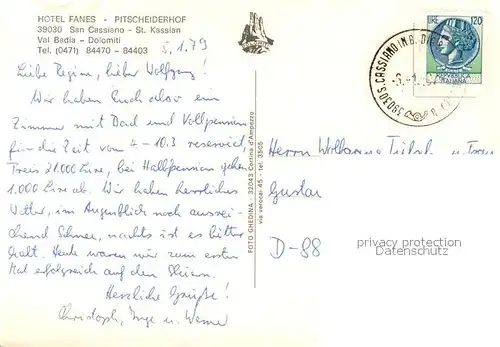 HOTEL FANES - PITSCHEIDERHOF
39030 San Cassiano - St. Kassian
Val Badia - Dolomiti
Tel. (0471) 84470 - 84403
5.1.79
Liebe Regina, lieber Wolfgang!
Wir haben Euch also ein
Zimmer mit Bad und Vollpension
für die Zeit vom 4-10.3 reserviert
Preis 21.000 Lire, bei Halbpension gehen
1.000 Lire ab. Wir haben herrliches
Wetter, im Augenblick noch ausrei-
chend Schnee, nachts ist es bitter
kalt. Heute waren wir zum ersten
Mal erfolgreich auf den Skiern.
Herzliche Grüße!
Christoph, Inge u. Werner
FOTO GHEDINA - 32043 Cortina d'Ampezzo
via verocai 45 - tel. 3905
LIRE 120
39030 S. CASSIANO IN B.
Herrn u.
D-88
privacy protection
Datenschutz